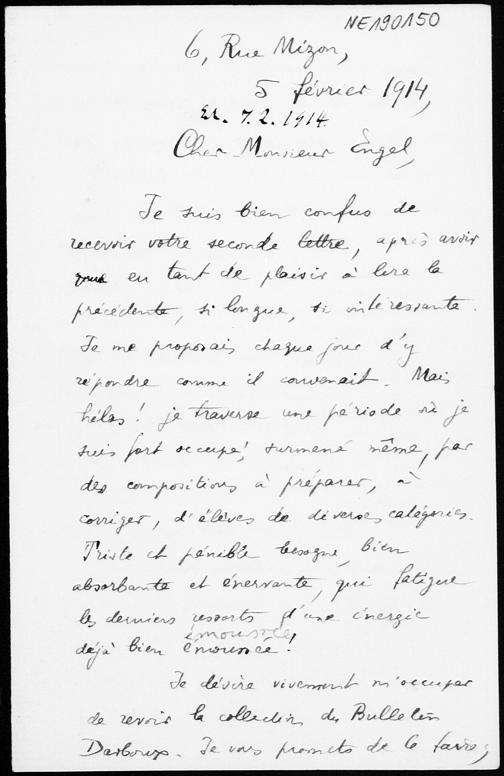 NE190150
6, Rue Mizon,
5 février 1914,
Er. 7.2.1914.
Cher Monsieur Engel,
Je suis bien confus de
recevoir votre seconde lettre, après avoir
eu tant de plaisir à lire la
précédente, si longue, si intéressante.
Je me proposais chaque jour d'y
répondre comme il convenait. Mais
hélas! je traverse une période où je
suis fort occupé, surmené même, par
des compositions à préparer, à
corriger, d'élèves de diverses catégories.
Triste et pénible besogne, bien
absorbante et énervante, qui fatigue
les derniers ressorts d'une énergie
émoussée
déjà bien émoussée!
Je désire vivement m'occuper
de revoir la collection du Bulletin
Darboux. Je vous promets de le faire,